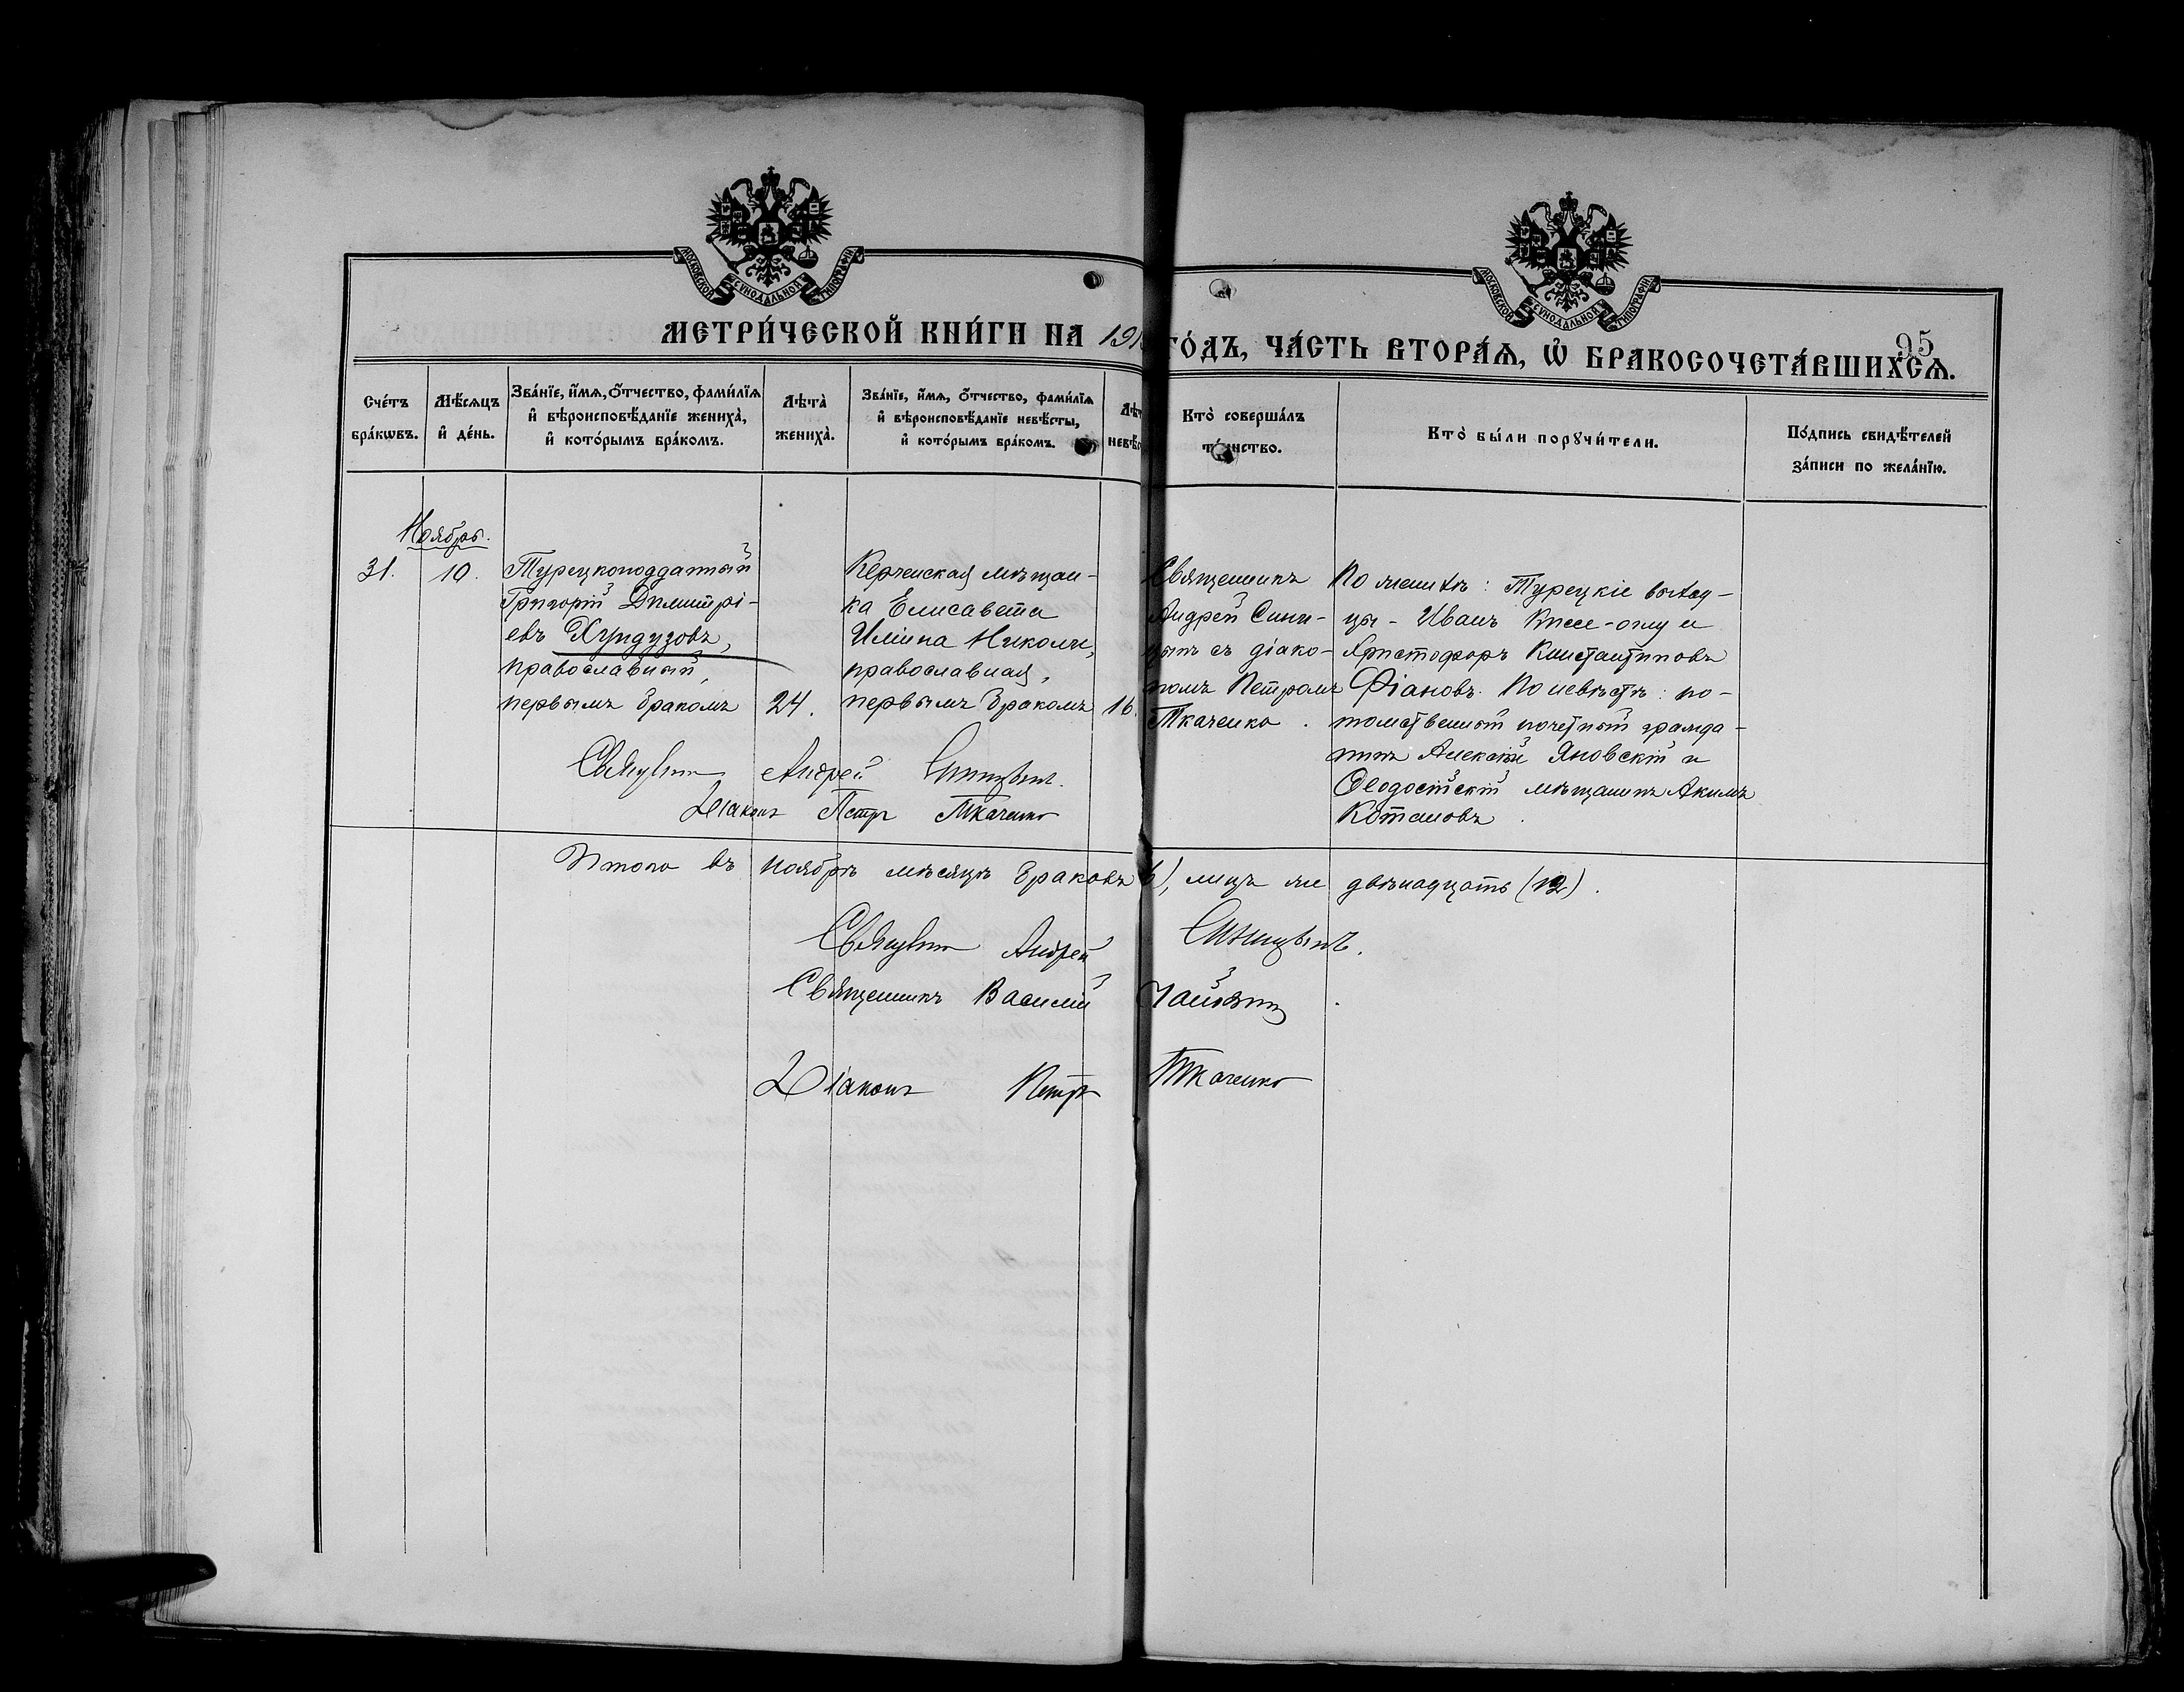 МОСКОВСКОЙ СУНОДАЛЬНОЙ ТИПОГРАФІИ
МОСКОВСКОЙ СУНОДАЛЬНОЙ ТИПОГРАФІИ
МЕТРИ́ЧЕСКОЙ КНИ́ГИ НА 191
ГО́ДЪ, ЧА́СТЬ ВТОРА́Ѧ, Ѡ҆ БРАКОСОЧЕТА́ВШИХСѦ.
95
Сче́тъ бра́кѡвъ.
Мѣ́сѧцъ и҆ де́нь.
Зва́нїе, и҆́мѧ, ѻ҆́тчество, фами́лїѧ
и҆ вѣроисповѣ́данїе жениха̀,
и҆ кото́рымъ бра́комъ.
Лѣта̀ жениха̀.
Зва́нїе, и҆́мѧ, ѻ҆́тчество, фами́лїѧ
и҆ вѣроисповѣ́данїе невѣ́сты,
и҆ кото́рымъ бра́комъ.
Кто̀ соверша́лъ
та́инство.
Кто̀ бы́ли порꙋчи́тели.
По́дпись свидѣ́телей
за́писи по жела́нїю.
Ноябрь.
31.
10.
Турецкоподданный
Григорій Димитрі-
евъ Хундузовъ,
православный,
первымъ бракомъ
24.
Керченская мѣщан-
ка Елисавета
Иліина Николи,
православная,
первымъ бракомъ
16.
Священникъ
Андрей Сини-
цынъ съ діако-
номъ Петромъ
Ткаченко.
По женихѣ: Турецкіе
цы - Иванъ оглу и
Христофоръ Константиновъ
Фіановъ. По невѣстѣ: по-
томственный почетный гражда-
нинъ Алексѣй Яновскій и
Ѳеодосійскій мѣщанинъ Акимъ
Котановъ.
Священникъ Андрей Синицынъ.
Діаконъ Петръ Ткаченко
Итого въ ноябрѣ мѣсяцѣ браковъ 6), лицъ же двѣнадцать (12).
Священникъ Андрей Синицынъ.
Священникъ Василій
Діаконъ Петръ Ткаченко